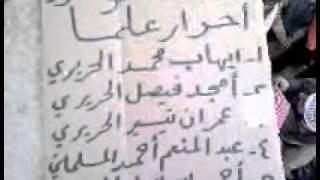 أحرار علما
١- ايهاب محمد الحريري
٢- أمجد فيصل الحريري
عمران تيسير الحريري
٤- عبد المنعم أحمد المسلماني